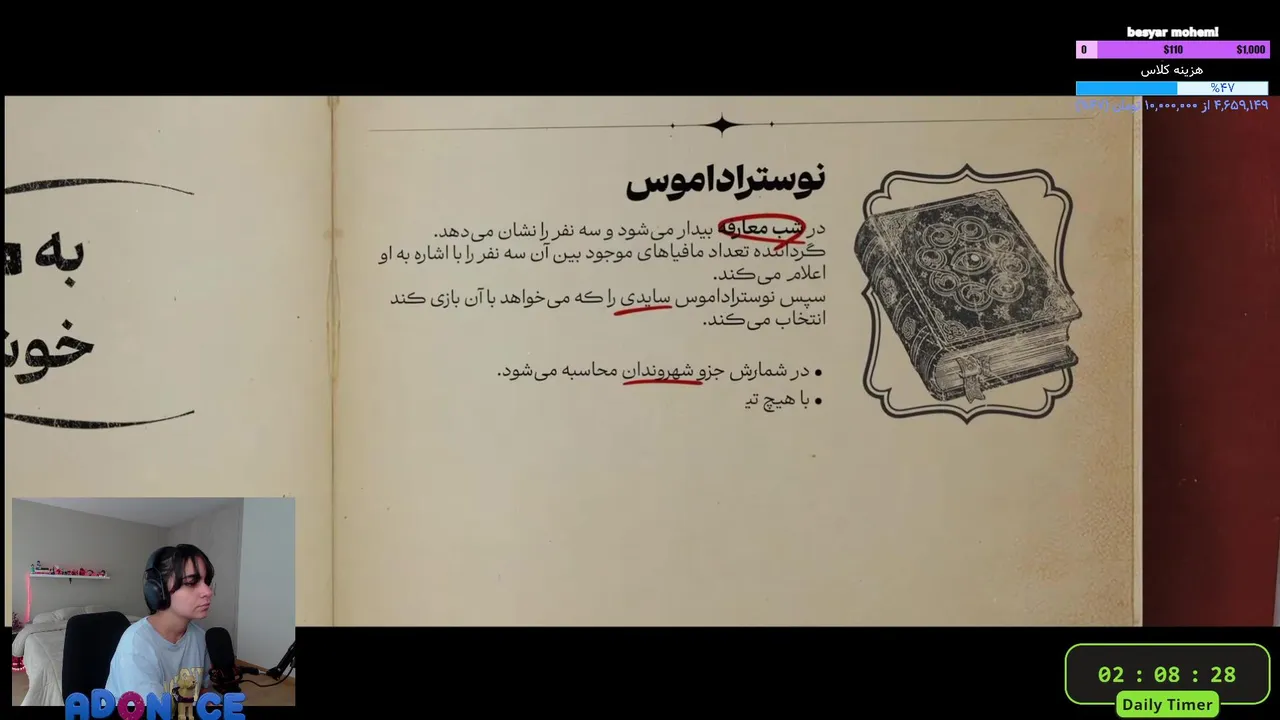 besyar mohemi
0 $110 $1,000
هزینه کلاس
%۴۷
۴,۶۵۹,۱۴۹ از ۱۰,۰۰۰,۰۰۰
نوستراداموس
در شب معارفه بیدار می‌شود و سه نفر را نشان می‌دهد.
گرداننده تعداد مافیاهای موجود بین آن سه نفر را با اشاره به او
اعلام می‌کند.
سپس نوستراداموس سایدی را که می‌خواهد با آن بازی کند
انتخاب می‌کند.
• در شمارش جزو شهروندان محاسبه می‌شود.
• با هیچ تی
به
02 : 08 : 28
Daily Timer